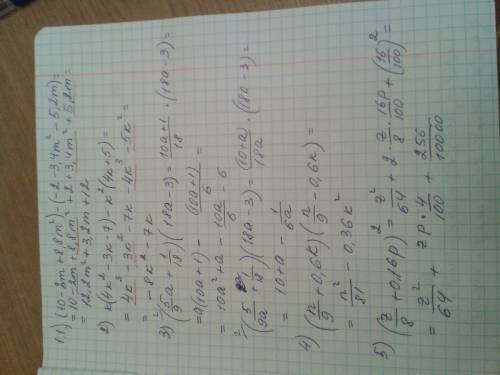 1.1) (10-2m+8,8m²)-(-2-3,4m²-5,2m)=
=10-2m+8,8m²+2+3,4m²+5,2m=
=12,2m²+3,2m+12
2) k(4k²-3k-7)-k²(4k+5)=
=4k³-3k²-7k-4k³-5k²=
=-8k²-7k
3) (5a/9+1/18)(18a-3)=10a+1/18·(18a-9)=
=a(10a+1)-(10a+1)/6=
=10a²+a-10a/6-6
(5/9a 1/18)(18a-3)=(10+a)/18a·(18a-3)=
=10+a-1/6a
4) (n/9+0,6k)(n/9-0,6k)=
=n²/81-0,36k²
5) (z/8+0,16p)²=z²/64+2·z/8·16p/100+(16/100)²=
=z²/64+zp·4/100+256/10000